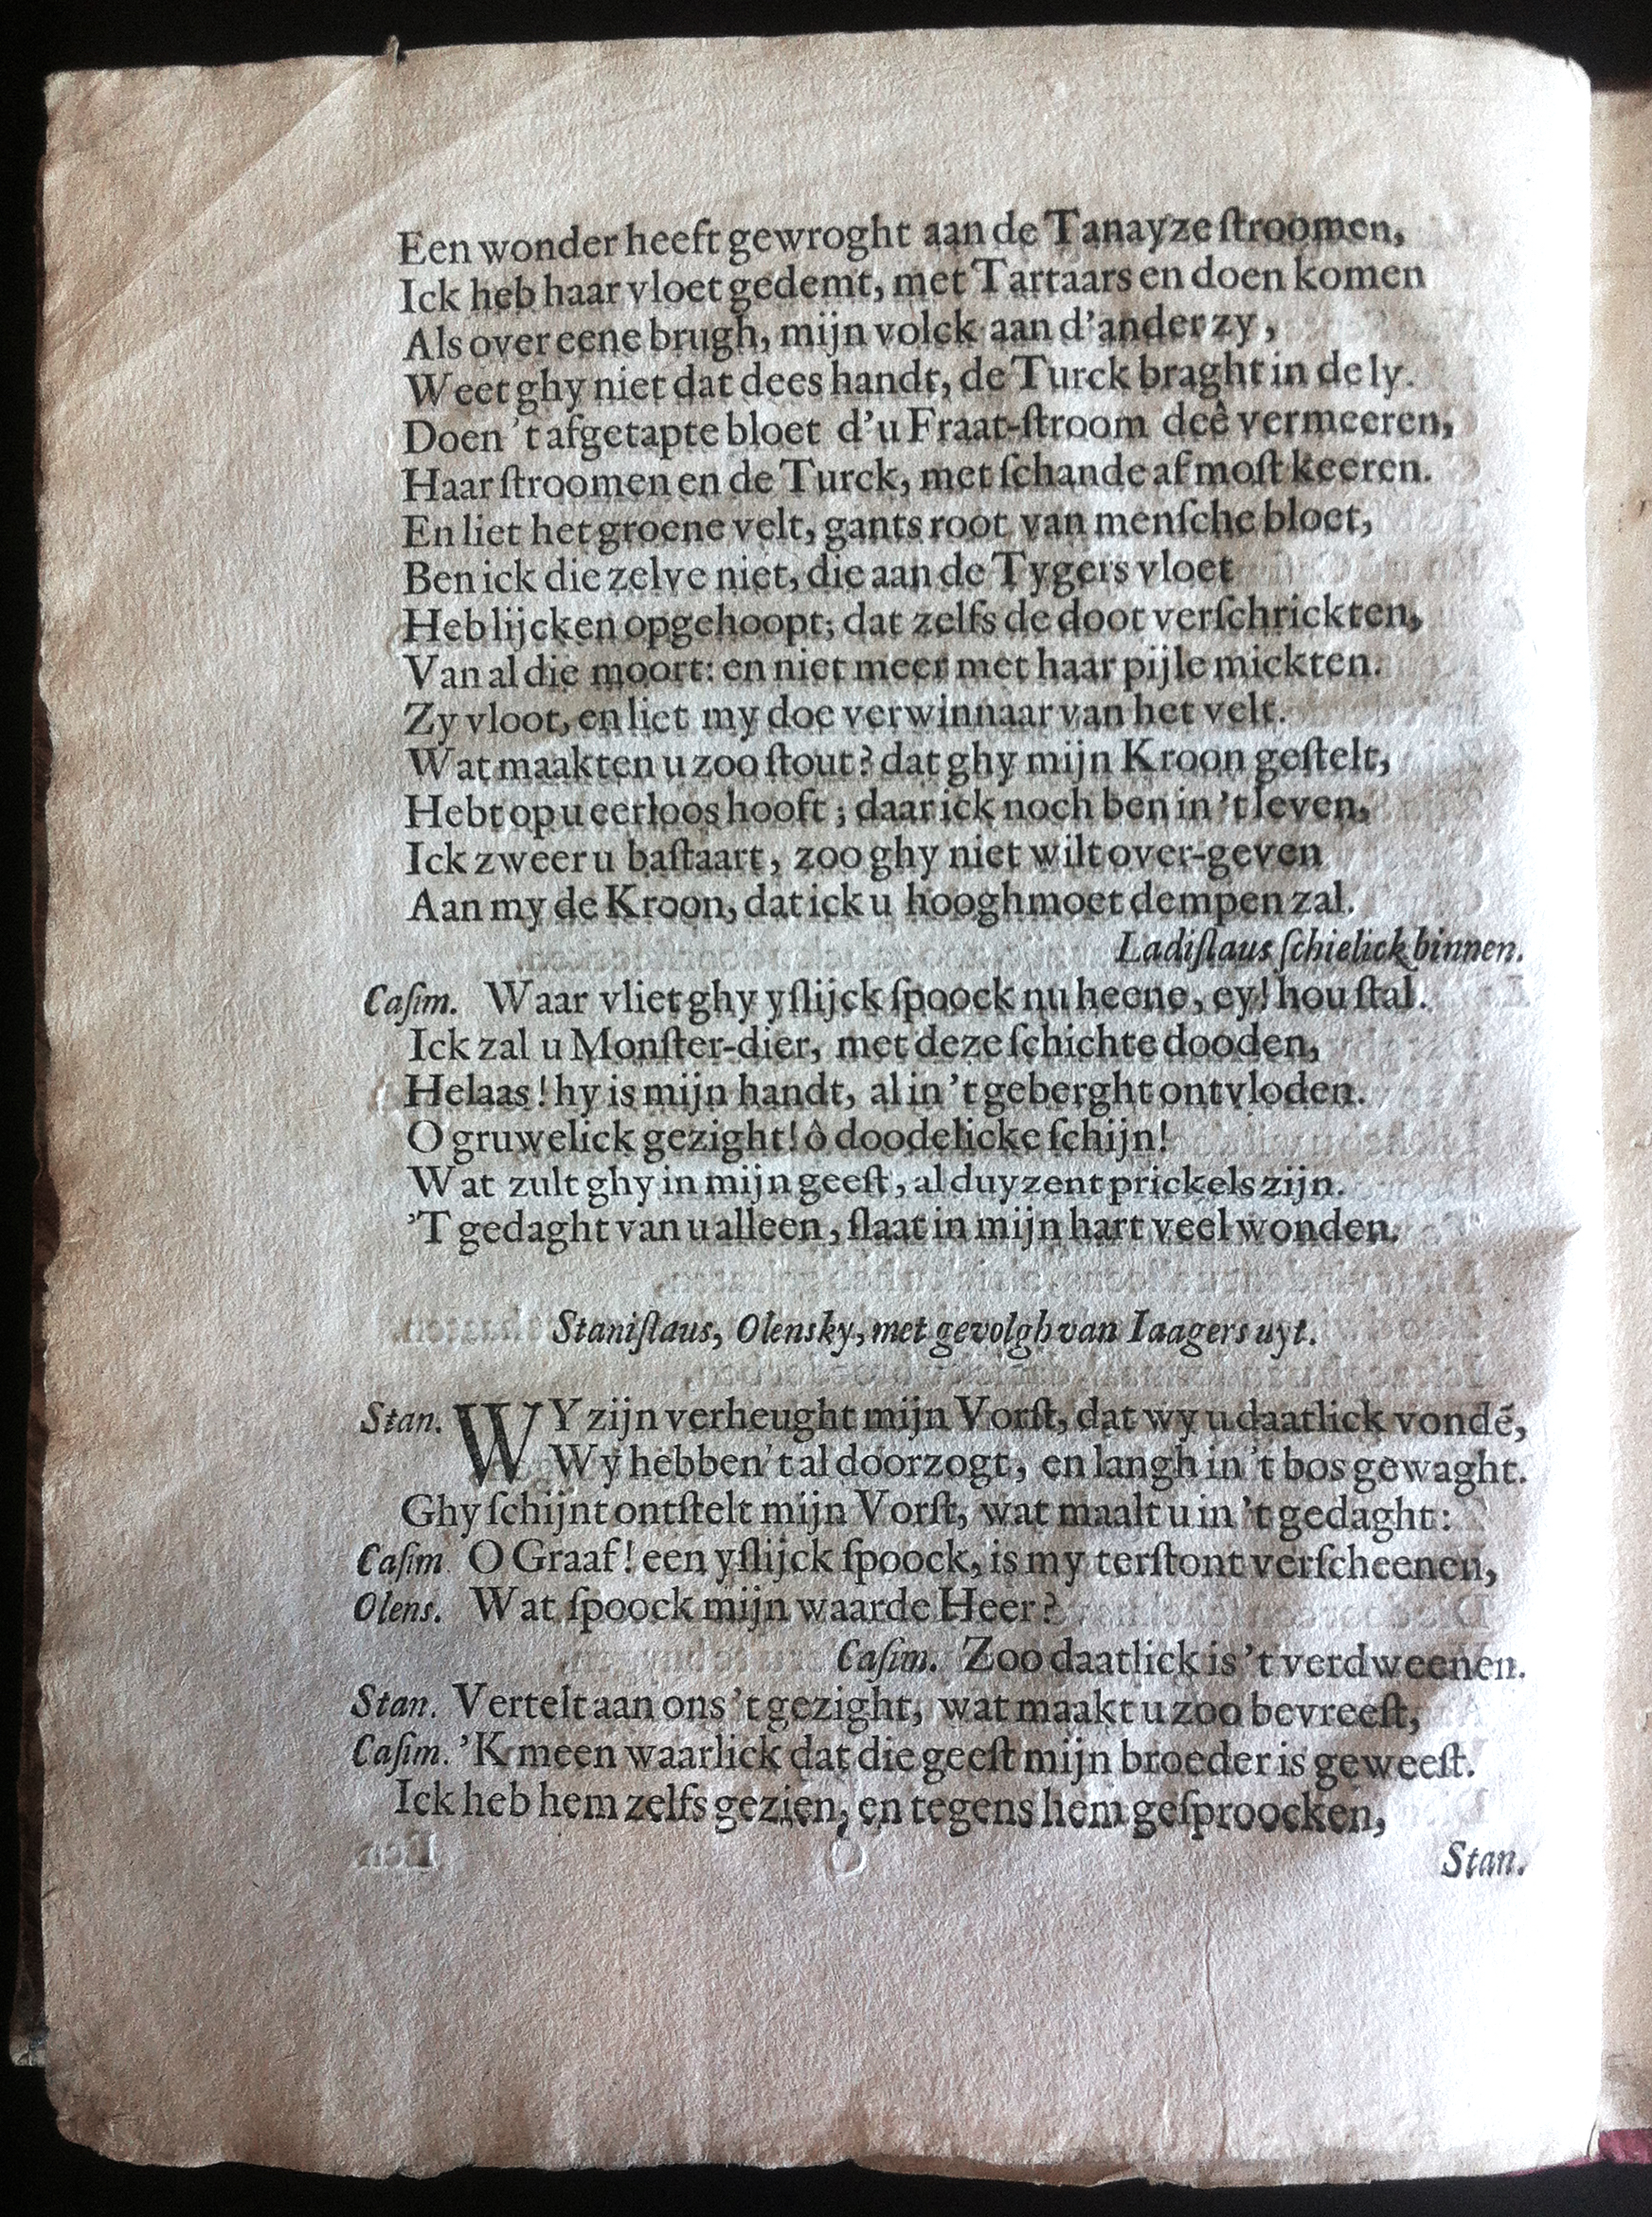 Een wonder heeft gewroght aan de Tanayze ſtroomen,
Ick heb haar vloet gedemt, met Tartaars en doen komen
Als over eene brugh, mijn volck aan d'ander zy,
Weet ghy niet dat dees handt, de Turck braght in de ly.
Doen 't afgetapte bloet d'u Fraat-ſtroom deê vermeeren,
Haar ſtroomen en de Turck, met ſchande af moſt keeren.
En liet het groene velt, gants root van menſche bloet,
Ben ick die zelve niet, die aan de Tygers vloet
Heb lijcken opgehoopt; dat zelfs de doot verſchrickten,
Van al die moort: en niet meer met haar pijle mickten.
Zy vloot, en liet my doe verwinnaar van het velt.
Wat maakten u zoo ſtout? dat ghy mijn Kroon geſtelt,
Hebt op u eerloos hooft; daar ick noch ben in 't leven,
Ick zweer u baſtaart, zoo ghy niet wilt over-geven
Aan my de Kroon, dat ick u hooghmoet dempen zal.
Ladiſlaus ſchielick binnen.
Caſim. Waar vliet ghy yſlijck ſpoock nu heene, ey! hou ſtal.
Ick zal u Monſter-dier, met deze ſchichte dooden,
Helaas! hy is mijn handt, al in 't geberght ontvloden.
O gruwelick gezight! ô doodelicke ſchijn!
Wat zult ghy in mijn geeſt, al duyzent prickels zijn.
'T gedaght van u alleen, ſlaat in mijn hart veel wonden.
Staniſlaus, Olensky, met gevolgh van Iaagers uyt.
Stan. WY zijn verheught mijn Vorſt, dat wy u daatlick vondē,
Wy hebben 't al doorzogt, en langh in 't bos gewaght.
Ghy ſchijnt ontſtelt mijn Vorſt, wat maalt u in 't gedaght:
Caſim O Graaf! een yſlijck ſpoock, is my terſtont verſcheenen,
Olens. Wat ſpoock mijn waarde Heer?
Caſim. Zoo daatlick is 't verdweenen.
Stan. Vertelt aan ons 't gezight, wat maakt u zoo bevreeſt,
Caſim. 'K meen waarlick dat die geeſt mijn broeder is geweeſt.
Ick heb hem zelfs gezien, en tegens hem geſproocken,
Stan.